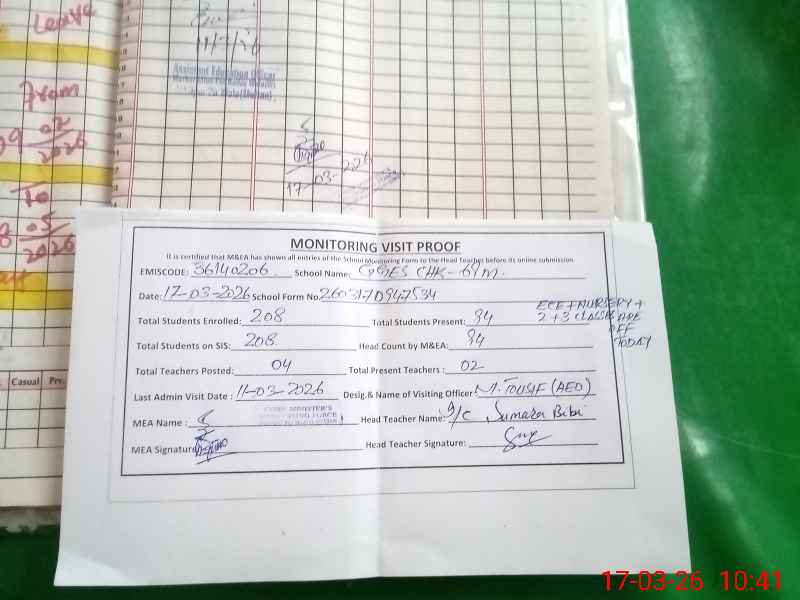 Leave
11/3/26
Assistant Education Officer
From
09 02
2026
17-03-226
To
8 05
2026
Casual
MONITORING VISIT PROOF
It is certified that M&EA has shown all entries of the School Monitoring Form to the Head Teacher before its online submission
EMISCODE: 36140206 School Name: GGES CHK-61M.
Date: 17-03-2026 School Form No. 2603170947534
ECE+NURSERY+
2+3 CLASSES ARE
OFF
TODAY
Total Students Enrolled: 208 Total Students Present: 94
Total Students on SIS: 208 Head Count by M&EA: 94
Total Teachers Posted: 04 Total Present Teachers: 02
Last Admin Visit Date: 11-03-2026 Desig.& Name of Visiting Officer: M. TOUSIF (AEO)
MEA Name: CHIEF MINISTER'S
Head Teacher Name: I/C Sumara Bibi
MEA Signature Head Teacher Signature:
17-03-26 10:41